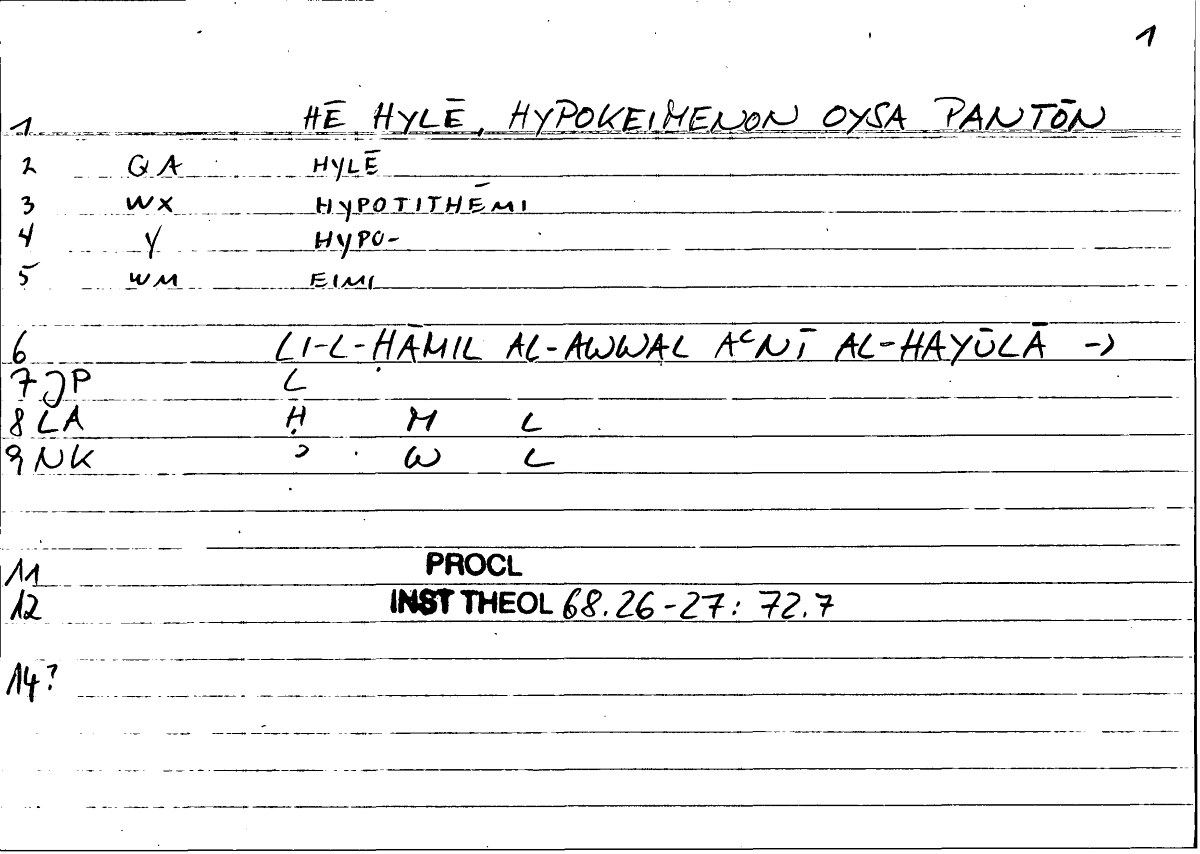 1
1 HĒ HYLĒ, HYPOKEIMENON OYSA PANTŌN
2 GA HYLĒ
3 WX HYPOTITHĒMI
4 Y HYPO-
5 WM EIMI
6 LI-L-ḤĀMIL AL-AWWAL AʿNĪ AL-HAYŪLĀ →
7 JP L
8 LA Ḥ M L
9 NK ʾ W L
11 PROCL
12 INST THEOL 68.26-27: 72.7
14?